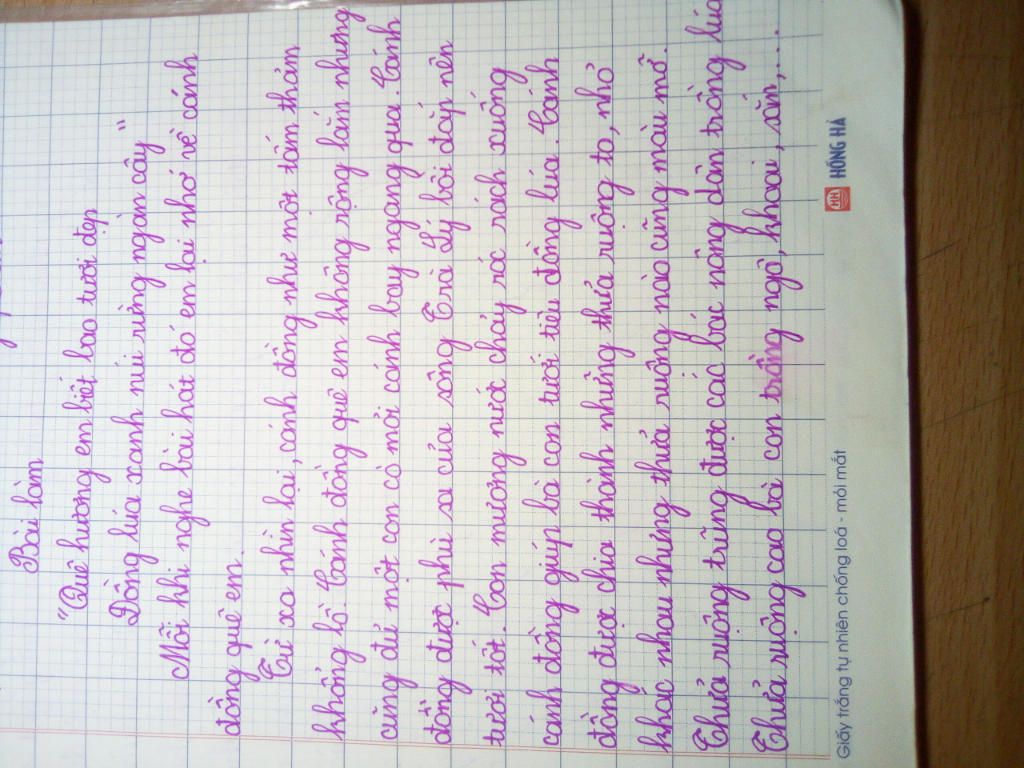 Bài làm
"Quê hương em biết bao tươi đẹp
Đồng lúa xanh núi rừng ngàn cây"
Mỗi khi nghe bài hát đó em lại nhớ về cánh
đồng quê em.
Từ xa nhìn lại, cánh đồng như một tấm thảm
khổng lồ. Cánh đồng quê em không rộng lắm nhưng
cũng đủ một con cò mỏi cánh bay ngang qua. Cánh
đồng được phù sa của sông Trà Lý bồi đắp nên
tươi tốt. Con mương nước chảy róc rách xuống
cánh đồng giúp bà con tưới tiêu đồng lúa. Cánh
đồng được chia thành những thửa ruộng to, nhỏ
khác nhau nhưng thửa ruộng nào cũng màu mỡ.
Thửa ruộng trũng được các bác nông dân trồng lúa
Thửa ruộng cao bà con trồng ngô, khoai, sắn,...
Giấy trắng tự nhiên chống loá - mỏi mắt
HH HỒNG HÀ